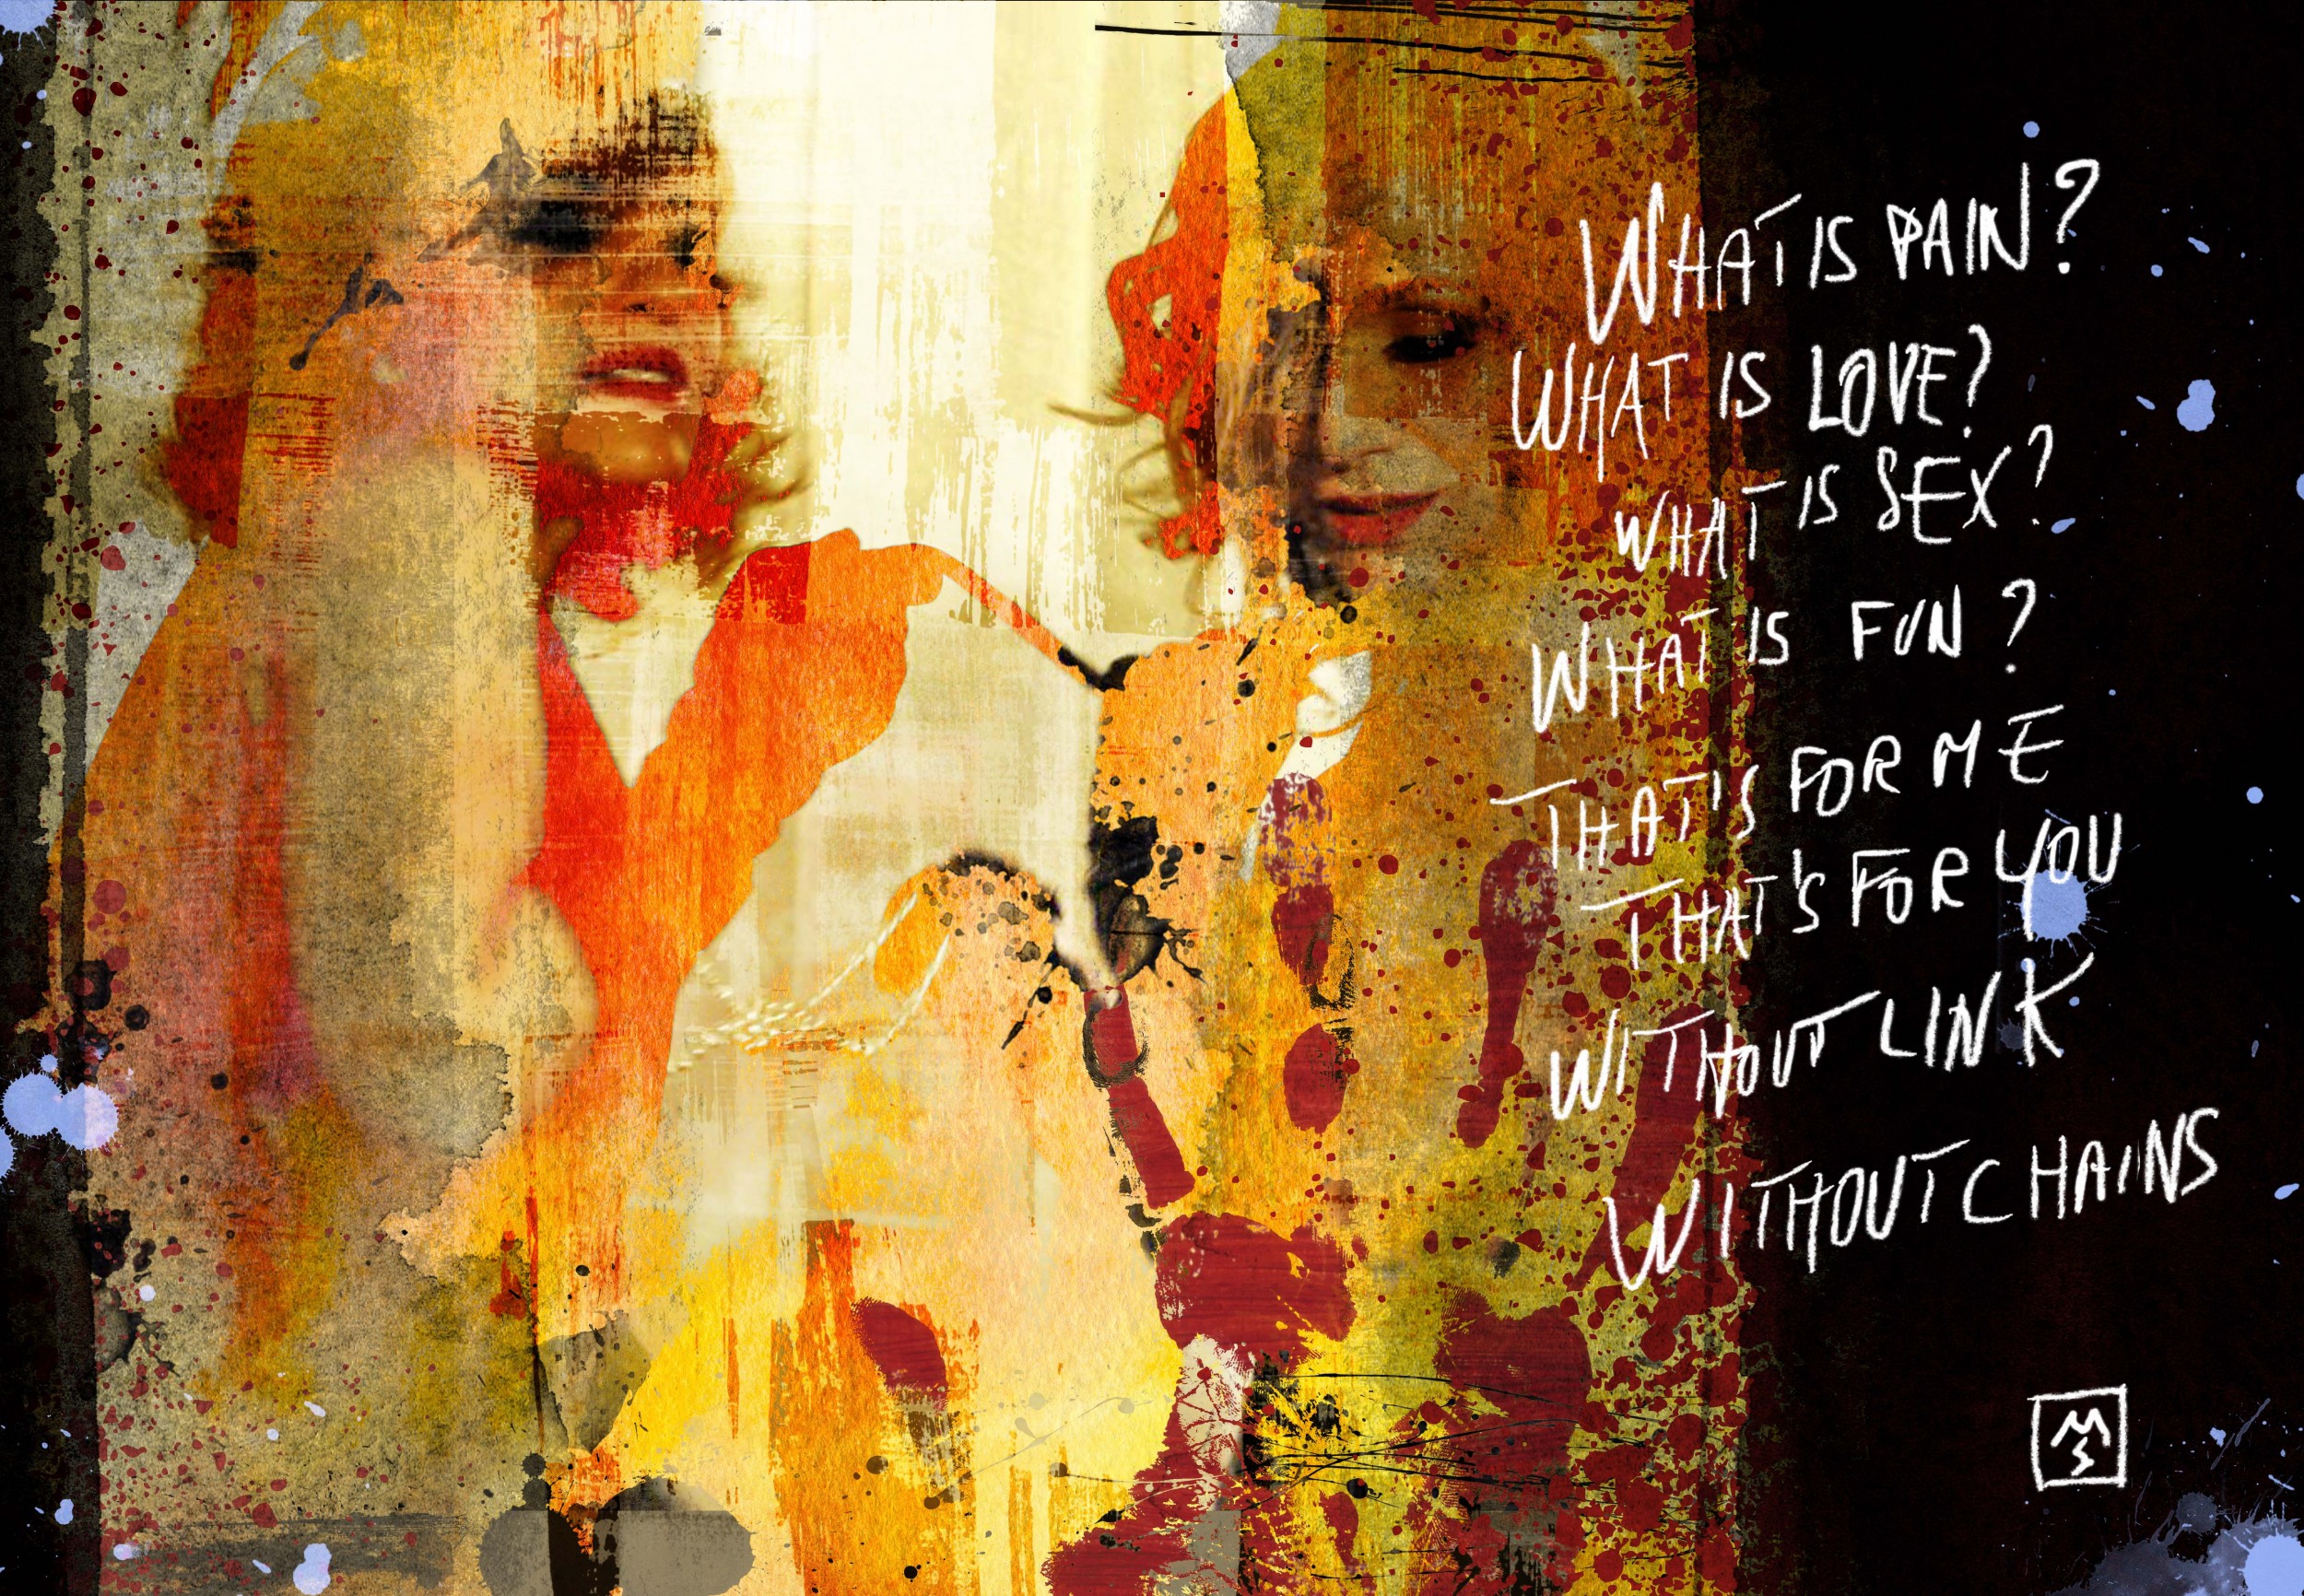 WHAT IS PAIN?
WHAT IS LOVE?
WHAT IS SEX?
WHAT IS FUN?
THAT'S FOR ME
THAT'S FOR YOU
WITHOUT LINK
WITHOUT CHAINS
MS